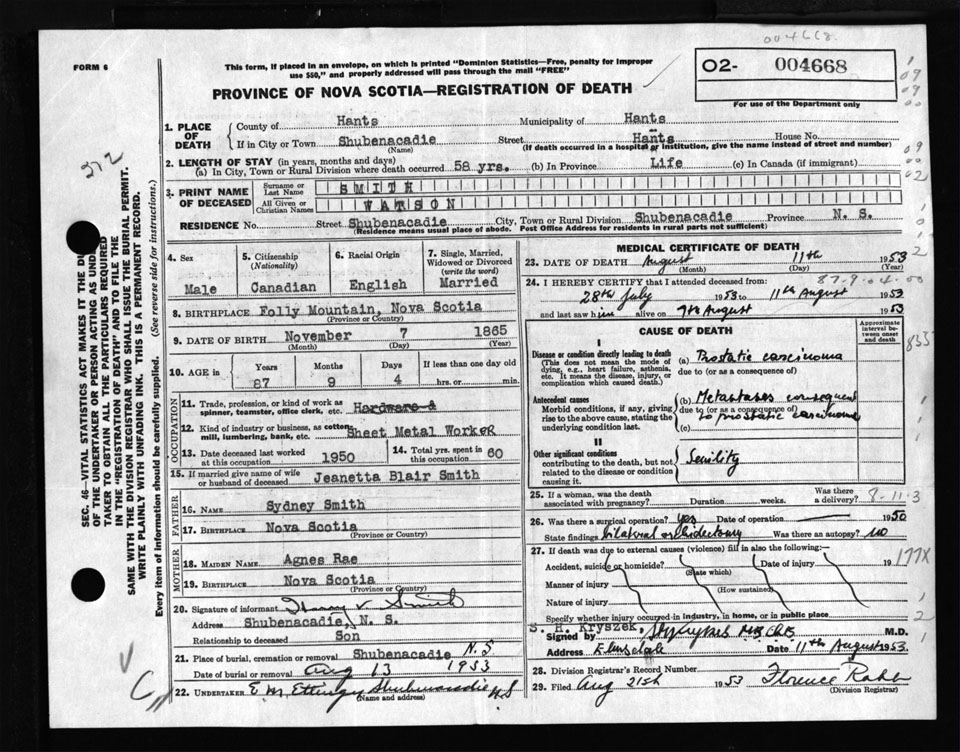 004668.
FORM 6
This form, if placed in an envelope, on which is printed "Dominion Statistics—Free, penalty for improper
use $50," and properly addressed will pass through the mail "FREE"
O2- 004668
For use of the Department only
PROVINCE OF NOVA SCOTIA—REGISTRATION OF DEATH
1. PLACE OF DEATH
County of Hants Municipality of Hants
If in City or Town Shubenacadie Street Hants House No.
(Name) (If death occurred in a hospital or institution, give the name instead of street and number)
2. LENGTH OF STAY (in years, months and days)
(a) In City, Town or Rural Division where death occurred 58 yrs. (b) In Province Life (c) In Canada (if immigrant)
3. PRINT NAME OF DECEASED
Surname or Last Name SMITH
All Given or Christian Names WATSON
RESIDENCE No. Street Shubenacadie City, Town or Rural Division Shubenacadie Province N. S.
(Residence means usual place of abode. Post Office Address for residents in rural parts not sufficient)
372
SEC. 46—VITAL STATISTICS ACT MAKES IT THE DU
OF THE UNDERTAKER OR PERSON ACTING AS UND
TAKER TO OBTAIN ALL THE PARTICULARS REQUIRED
IN THE "REGISTRATION OF DEATH" AND TO FILE THE
SAME WITH THE DIVISION REGISTRAR WHO SHALL ISSUE THE BURIAL PERMIT.
WRITE PLAINLY WITH UNFADING INK. THIS IS A PERMANENT RECORD.
Every item of information should be carefully supplied. (See reverse side for instructions.)
4. Sex
Male
5. Citizenship
(Nationality)
Canadian
6. Racial Origin
English
7. Single, Married,
Widowed or Divorced
(write the word)
Married
8. BIRTHPLACE Folly Mountain, Nova Scotia
(Province or Country)
9. DATE OF BIRTH November 7 1865
(Month) (Day) (Year)
10. AGE in Years Months Days If less than one day old
87 9 4 hrs. or min.
OCCUPATION
11. Trade, profession, or kind of work as
spinner, teamster, office clerk, etc. Hardware &
12. Kind of industry or business, as cotton
mill, lumbering, bank, etc. Sheet Metal Worker
13. Date deceased last worked
at this occupation 1950
14. Total yrs. spent in
this occupation 60
15. If married give name of wife
or husband of deceased Jeanetta Blair Smith
FATHER
16. NAME Sydney Smith
17. BIRTHPLACE Nova Scotia
(Province or Country)
MOTHER
18. MAIDEN NAME Agnes Rae
19. BIRTHPLACE Nova Scotia
(Province or Country)
20. Signature of informant Smith
Address Shubenacadie, N. S.
Relationship to deceased Son
21. Place of burial, cremation or removal Shubenacadie N.S
Date of burial or removal Aug 13 1953
22. UNDERTAKER E M Ettinger Shubenacadie N.S
(Name and address)
MEDICAL CERTIFICATE OF DEATH
23. DATE OF DEATH August 11th 1953
(Month) (Day) (Year)
24. I HEREBY CERTIFY that I attended deceased from: 87-9-04-00
28th July 1953 to 11th August 1953
and last saw him alive on 7th August 1953
CAUSE OF DEATH
Approximate
interval between
onset
and death
I
Disease or condition directly leading to death
(This does not mean the mode of
dying, e.g., heart failure, asthenia,
etc. It means the disease, injury, or
complication which caused death.)
(a) Prostatic carcinoma
due to (or as a consequence of)
Antecedent causes
Morbid conditions, if any, giving
rise to the above cause, stating the
underlying condition last.
(b) Metastases consequent
due to (or as a consequence of)
to prostatic carcinoma
(c)
II
Other significant conditions
contributing to the death, but not
related to the disease or condition
causing it.
Senility
25. If a woman, was the death
associated with pregnancy? Duration weeks. Was there
a delivery? 8-11-3
26. Was there a surgical operation? Yes Date of operation 1950
State findings bilateral orchidectomy Was there an autopsy? no
27. If death was due to external causes (violence) fill in also the following:—
Accident, suicide or homicide? Date of injury 19 177X
(State which)
Manner of injury
(How sustained)
Nature of injury
Specify whether injury occurred in industry, in home, or in public place
S. H. Kryszek,
Signed by M.D.
Address Elmsdale Date 11th August 1953.
28. Division Registrar's Record Number
29. Filed Aug 21st 1953 Florence
(Division Registrar)